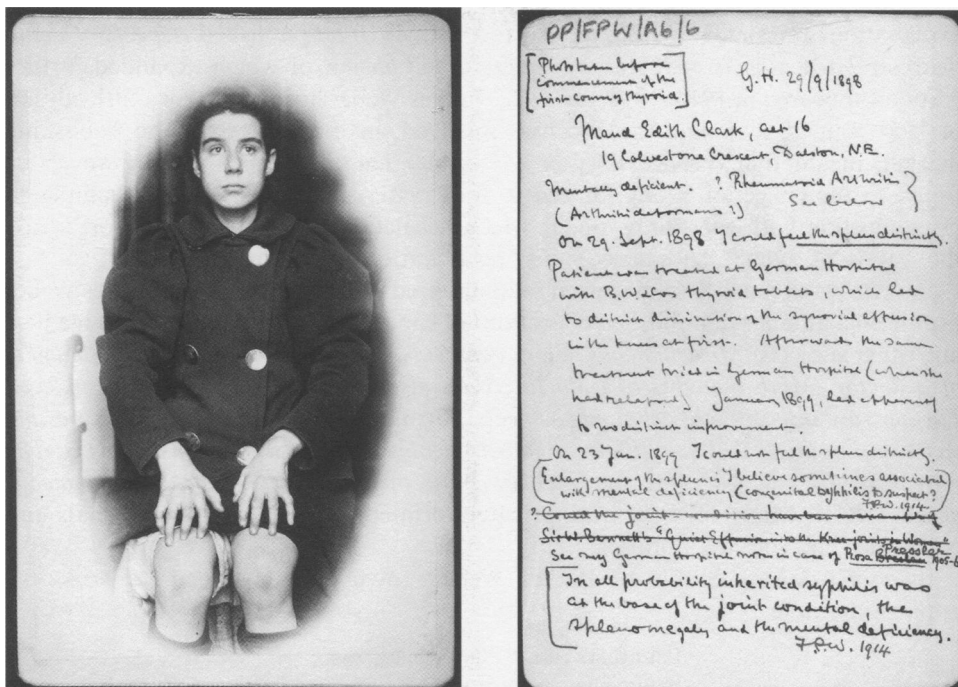 PP/FPW/A6/6
[Photo taken before
commencement of the
first course of thyroid.]
G. H. 29/9/1898
Maud Edith Clark, aet 16
19 Colvestone Crescent, Dalston, N.E.
Mentally deficient. ? Rheumatoid Arthritis
(Arthritis deformans?) See below
On 29. Sept. 1898 I could feel the spleen distinctly.
Patient was treated at German Hospital
with B.W. & Cos thyroid tablets, which led
to distinct diminution of the synovial effusion
in the knees at first. Afterwards the same
treatment tried in German Hospital (when she
had relapsed) January 1899, led apparently
to no distinct improvement.
On 23 Jan. 1899 I could not feel the spleen distinctly.
(Enlargement of the spleen is I believe sometimes associated
with mental deficiency (congenital syphilis to suspect?
F.P.W. 1914
? Could the joint condition have been an example of
Sir W. Bennett's "Quiet Effusion into the Knee joints in Women"
See my German Hospital notes in case of Rosa Breslau Presslar 1905-6
[In all probability inherited syphilis was
at the base of the joint condition, the
splenomegaly and the mental deficiency.
F.P.W. 1914